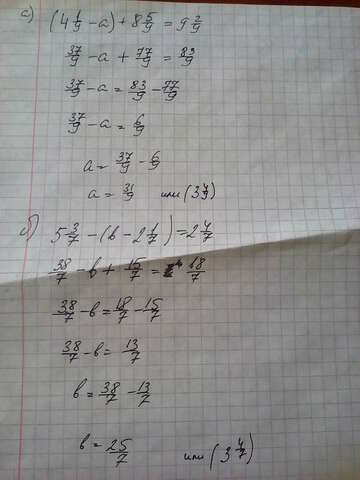 а) (4 1/9 - a) + 8 5/9 = 9 2/9
37/9 - a + 77/9 = 83/9
37/9 - a = 83/9 - 77/9
37/9 - a = 6/9
a = 37/9 - 6/9
a = 31/9 или (3 4/9)
б) 5 3/7 - (b - 2 1/7) = 2 4/7
38/7 - b + 15/7 = 18/7
38/7 - b = 18/7 - 15/7
38/7 - b = 13/7
b = 38/7 - 13/7
b = 25/7 или (3 4/7)